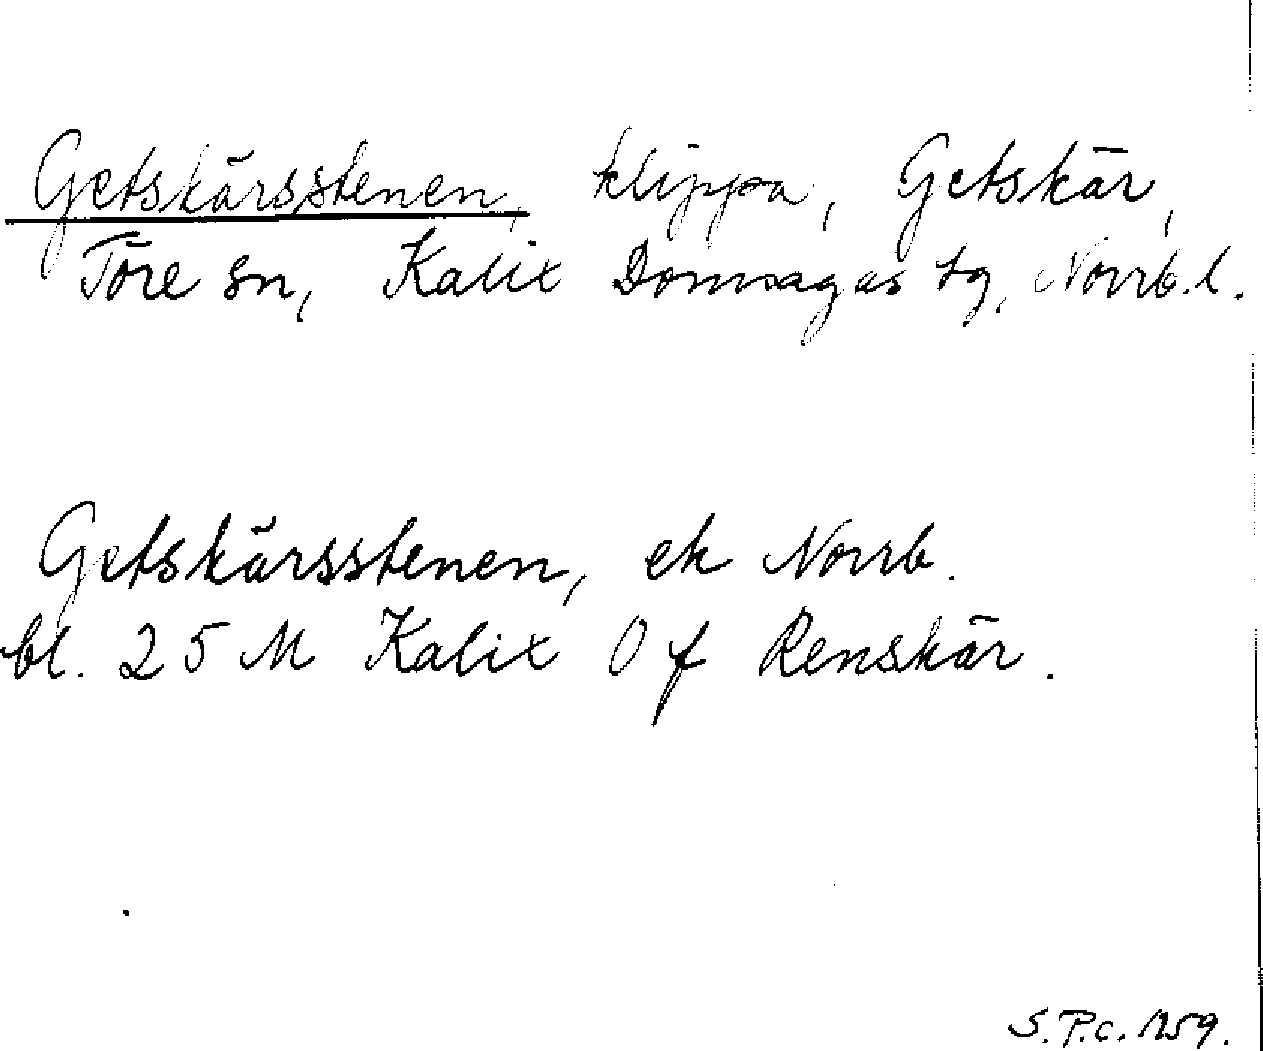 Getskärsstenen, klippa, Getskär,
Töre sn, Kalix Domsagas tg, Norrb.l.
Getskärsstenen, ek Norrb.
bl. 25 M Kalix O f Renskär.
S.P.c. 1959.